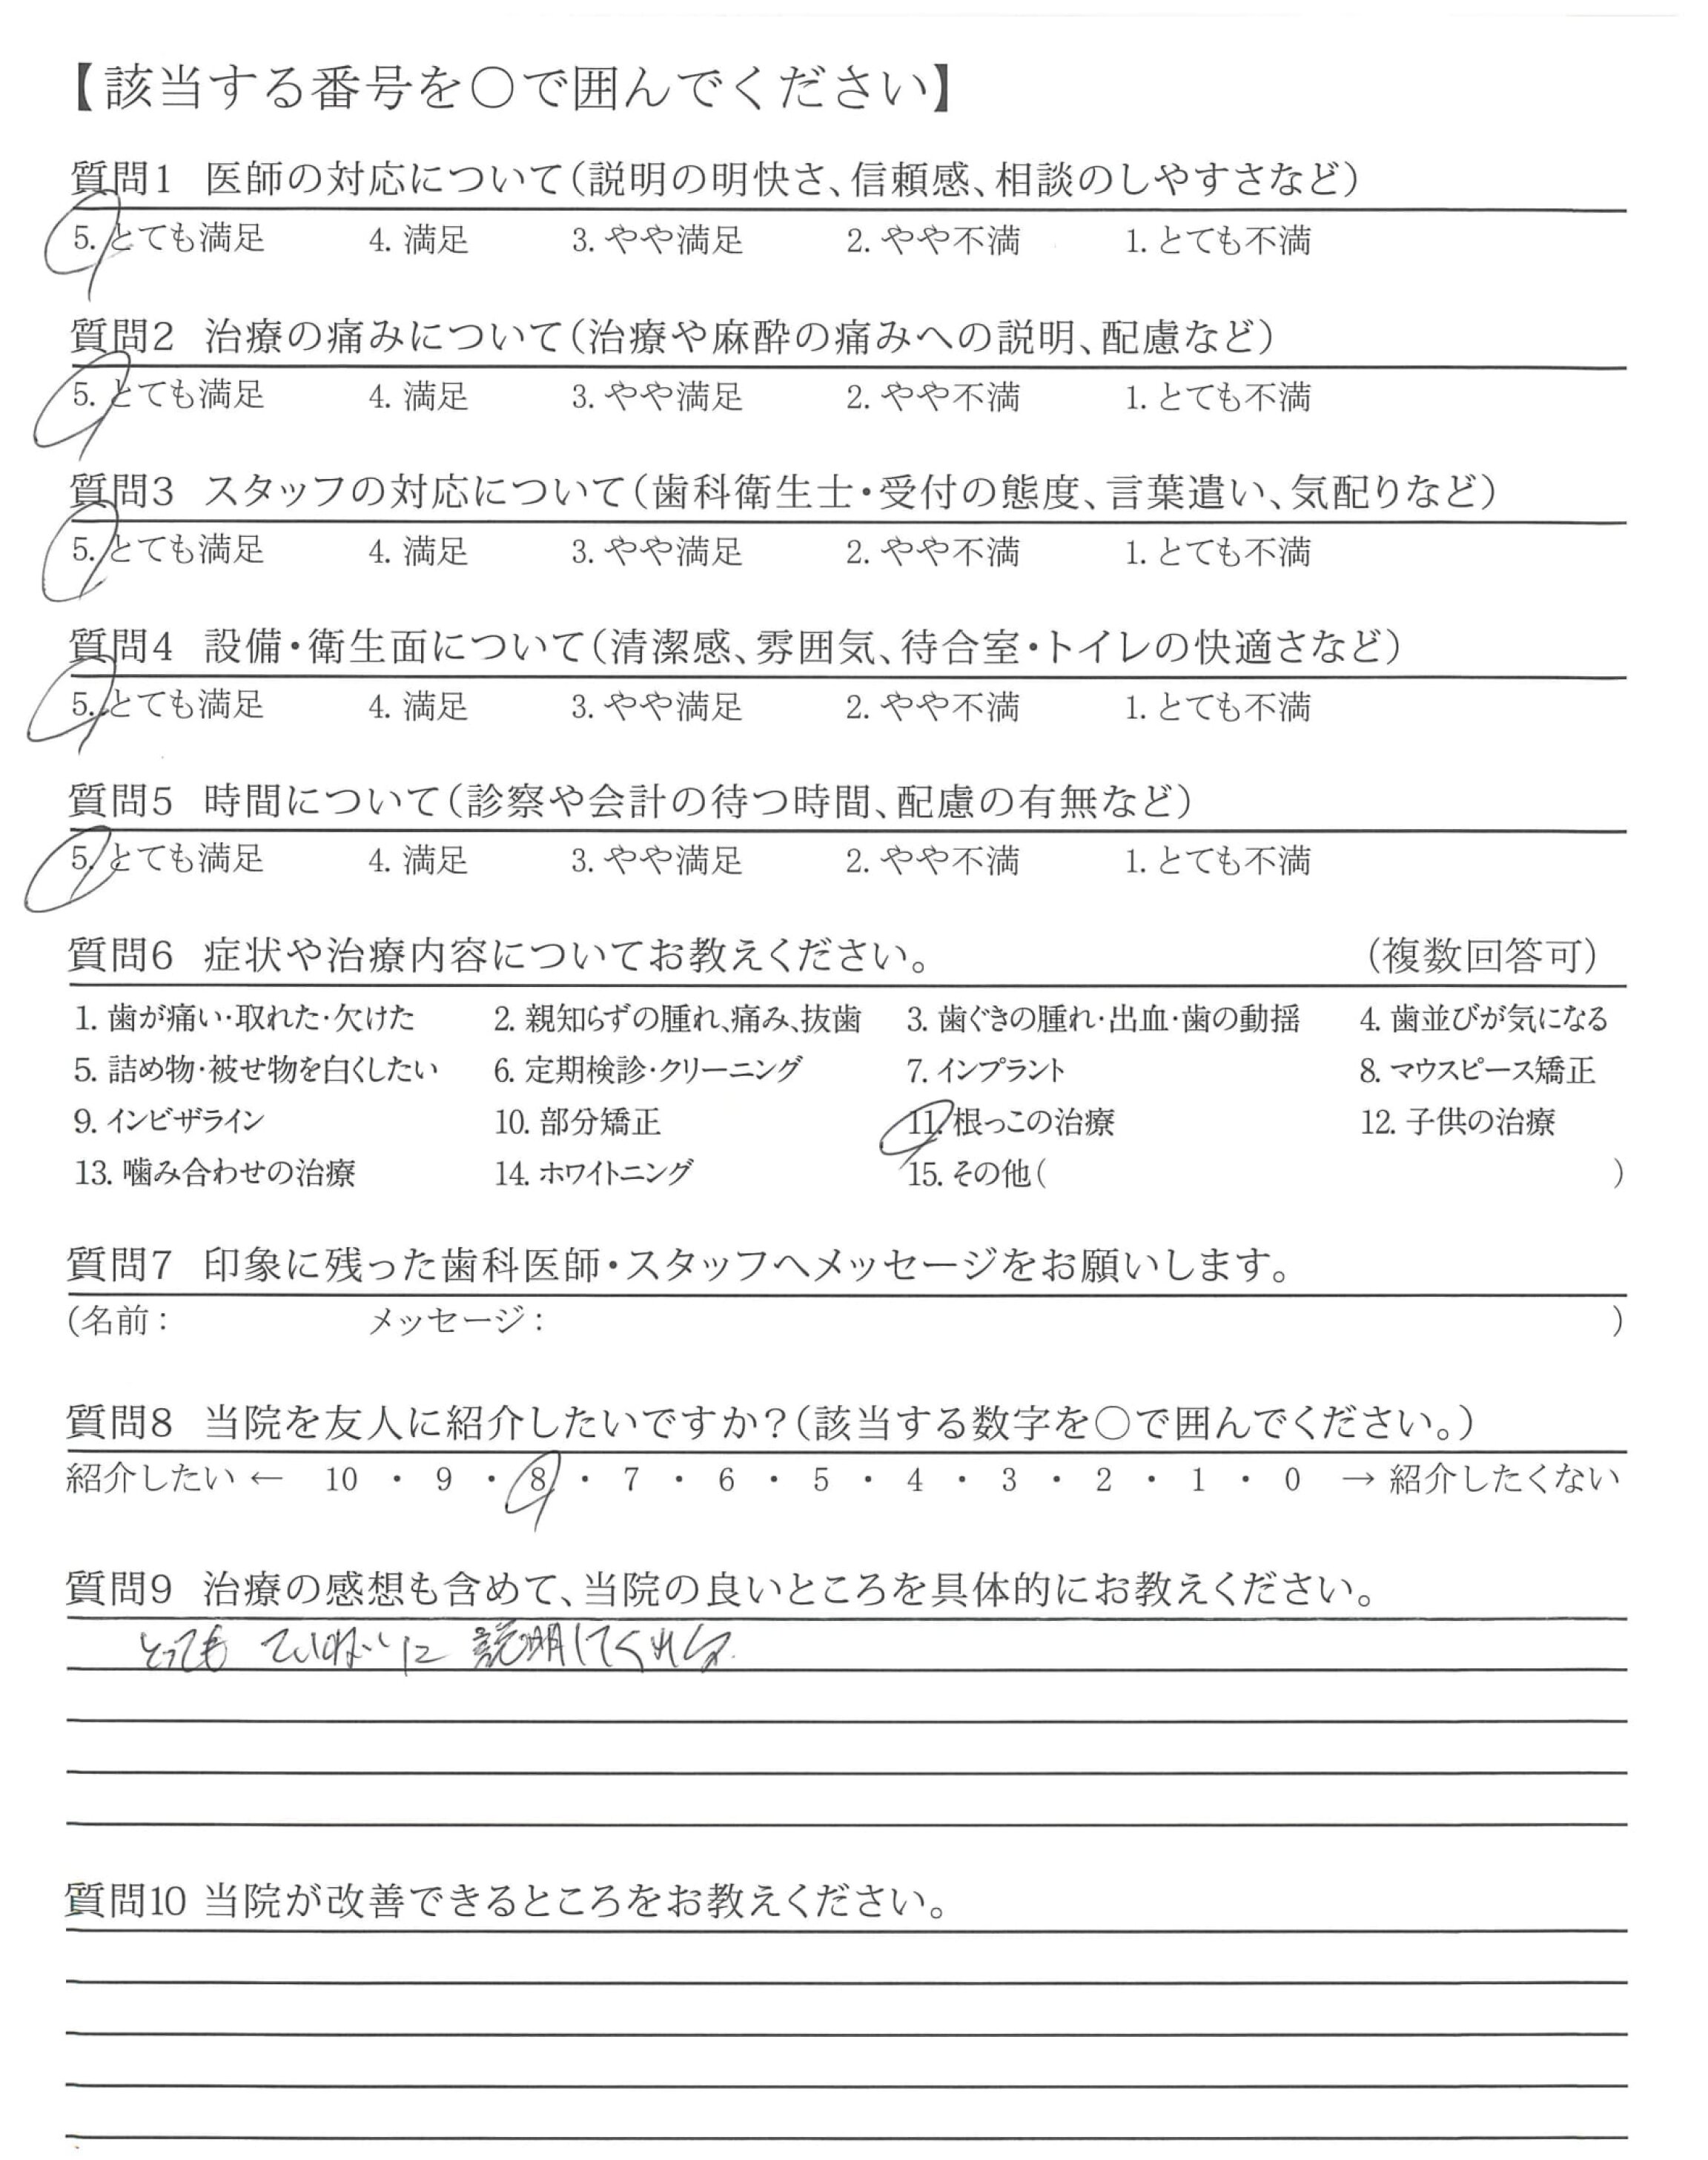 【該当する番号を○で囲んでください】
質問1 医師の対応について(説明の明快さ、信頼感、相談のしやすさなど)
5. とても満足 4. 満足 3. やや満足 2. やや不満 1. とても不満
質問2 治療の痛みについて(治療や麻酔の痛みへの説明、配慮など)
5. とても満足 4. 満足 3. やや満足 2. やや不満 1. とても不満
質問3 スタッフの対応について(歯科衛生士・受付の態度、言葉遣い、気配りなど)
5. とても満足 4. 満足 3. やや満足 2. やや不満 1. とても不満
質問4 設備・衛生面について(清潔感、雰囲気、待合室・トイレの快適さなど)
5. とても満足 4. 満足 3. やや満足 2. やや不満 1. とても不満
質問5 時間について(診察や会計の待つ時間、配慮の有無など)
5. とても満足 4. 満足 3. やや満足 2. やや不満 1. とても不満
質問6 症状や治療内容についてお教えください。 (複数回答可)
1. 歯が痛い・取れた・欠けた 2. 親知らずの腫れ、痛み、抜歯 3. 歯ぐきの腫れ・出血・歯の動揺 4. 歯並びが気になる
5. 詰め物・被せ物を白くしたい 6. 定期検診・クリーニング 7. インプラント 8. マウスピース矯正
9. インビザライン 10. 部分矯正 11. 根っこの治療 12. 子供の治療
13. 噛み合わせの治療 14. ホワイトニング 15. その他( )
質問7 印象に残った歯科医師・スタッフへメッセージをお願いします。
(名前: メッセージ: )
質問8 当院を友人に紹介したいですか?(該当する数字を○で囲んでください。)
紹介したい ← 10 ・ 9 ・ 8 ・ 7 ・ 6 ・ 5 ・ 4 ・ 3 ・ 2 ・ 1 ・ 0 → 紹介したくない
質問9 治療の感想も含めて、当院の良いところを具体的にお教えください。
とても ていねいに 説明してくれる
質問10 当院が改善できるところをお教えください。